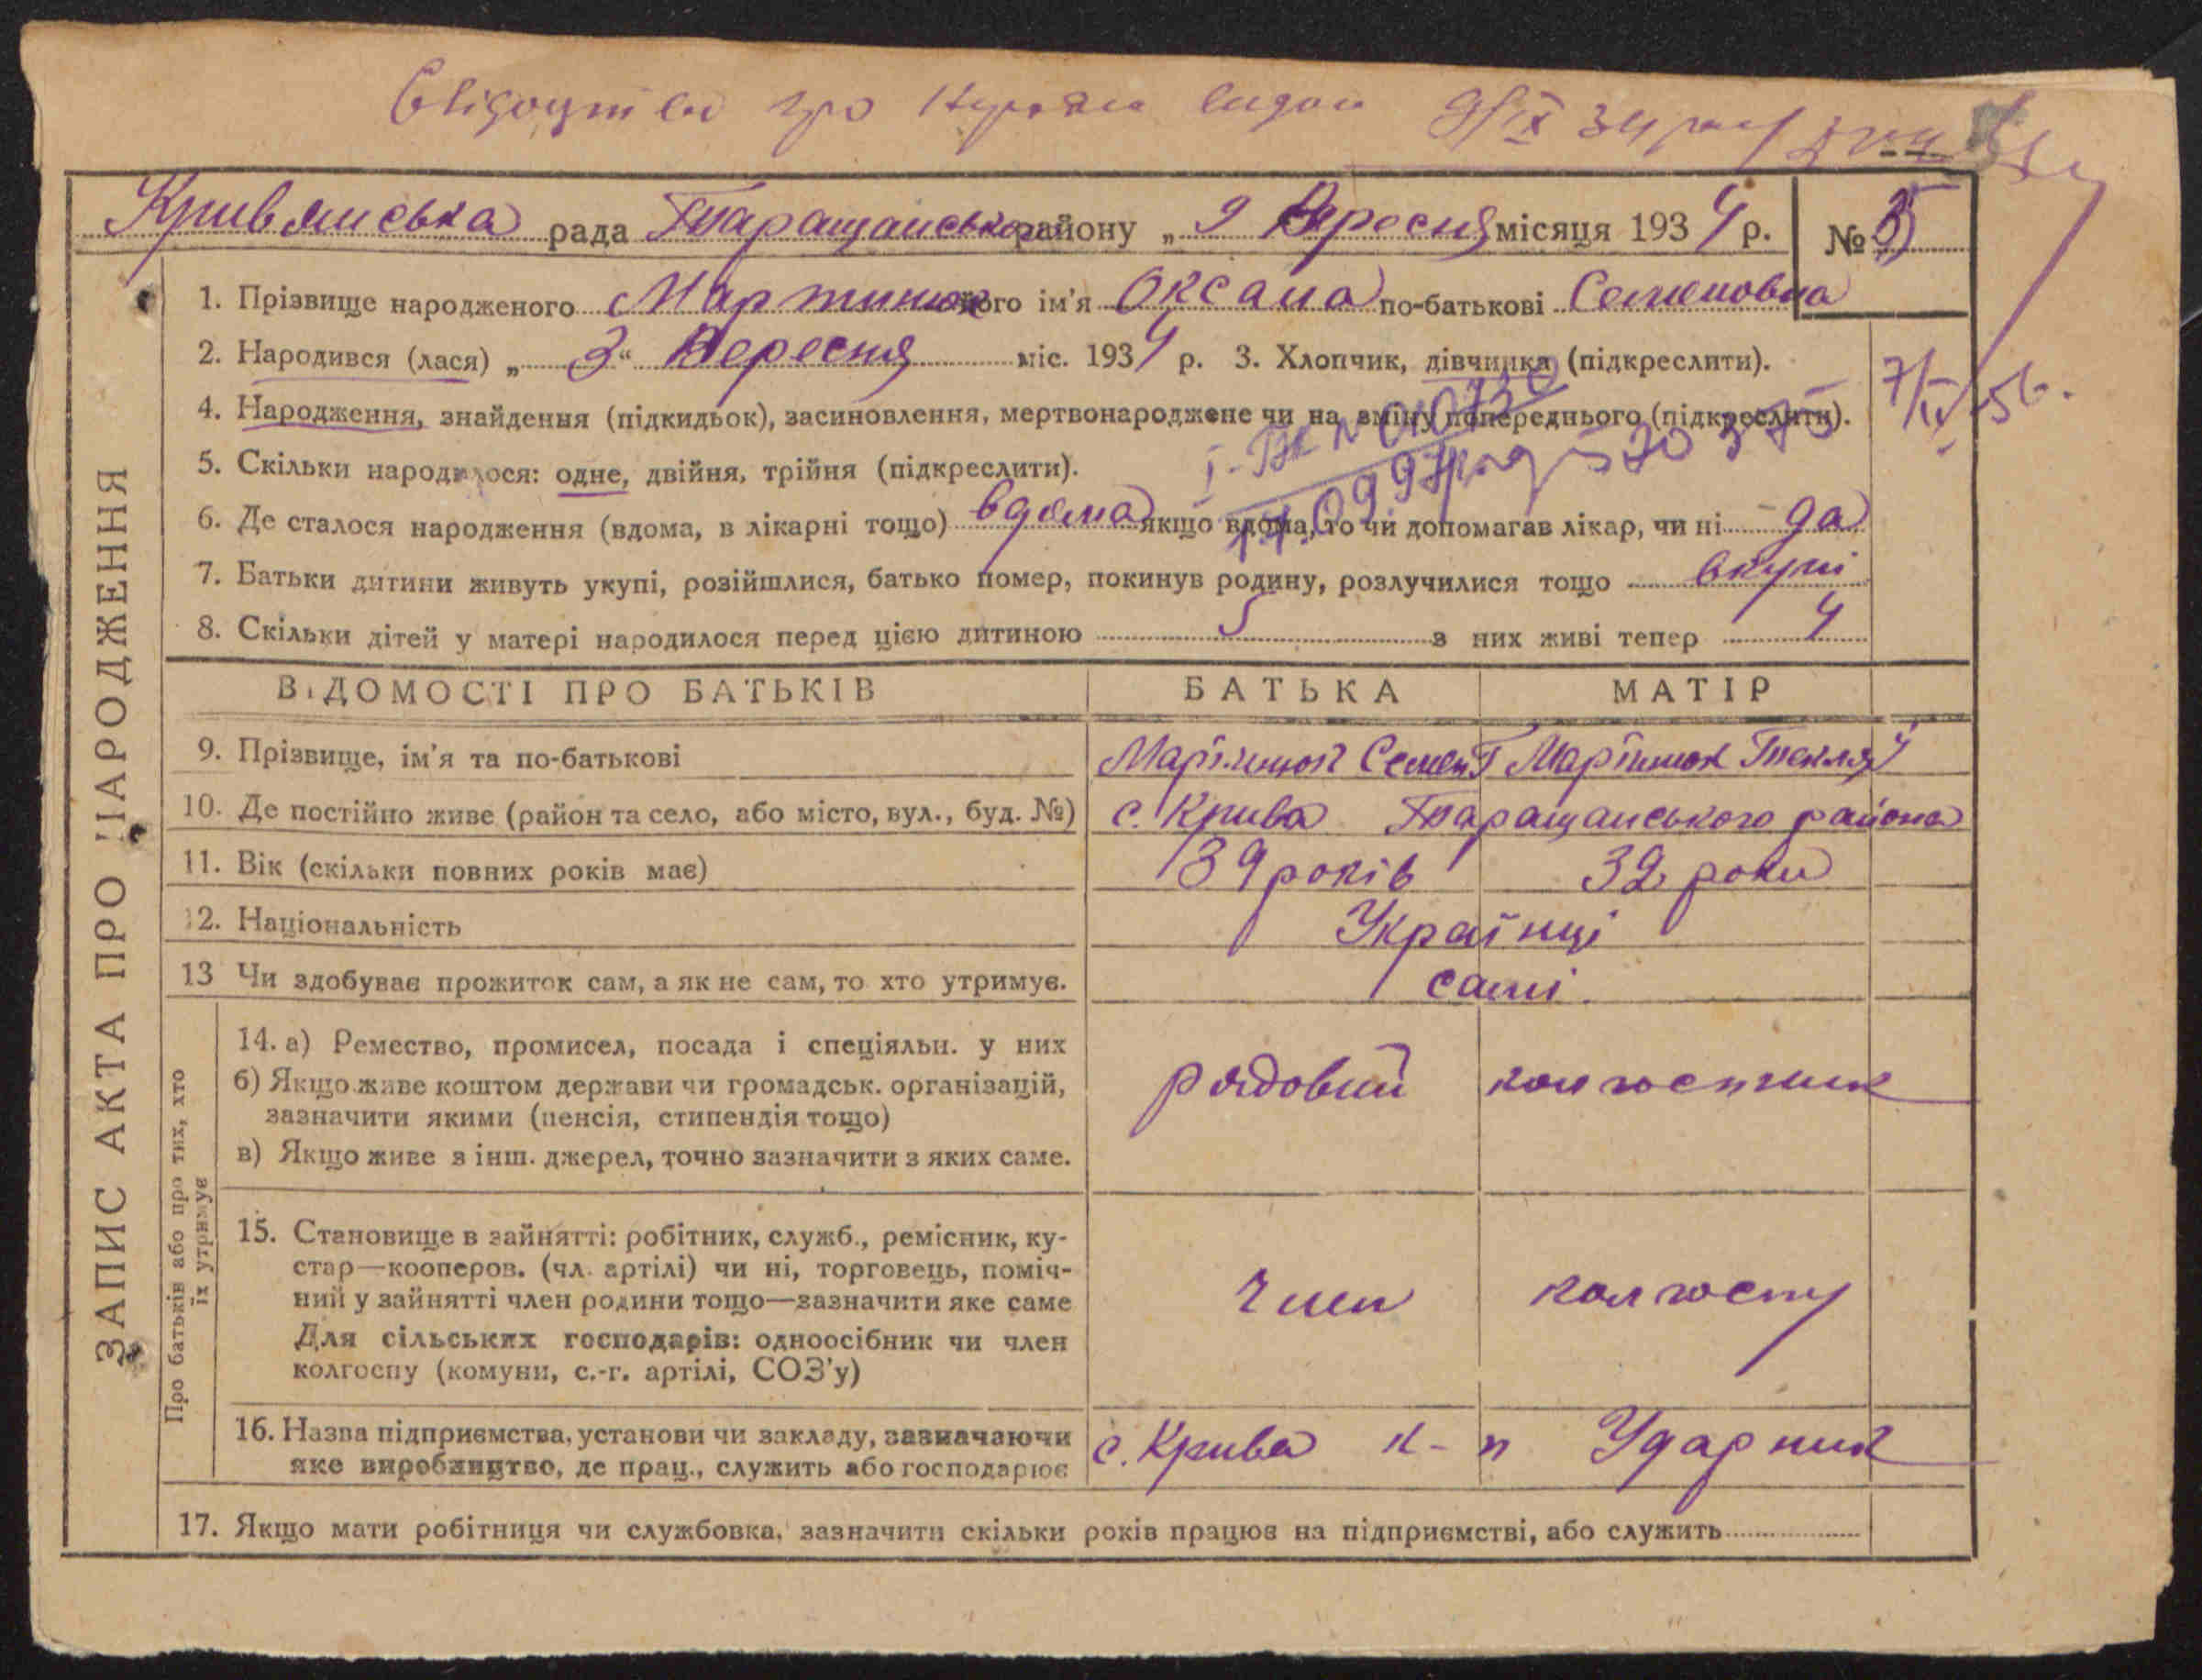 Свідоцтво про народж видан 9/IX 34 року
Кривлянська рада Таращанського району „ 9 Вересня місяця 1934 р. № 35
1. Прізвище народженого Мартинюк його ім'я Оксана по-батькові Семеновна
2. Народився (лася) „ 3 “ Вересня міс. 1934 р. 3. Хлопчик, дівчинка (підкреслити).
7/IV 56.
4. Народження, знайдення (підкидьок), засиновлення, мертвонароджене чи на зміну попереднього (підкреслити).
І-БК № 010730
5. Скільки народилося: одне, двійня, трійня (підкреслити).
17.09.97р
6. Де сталося народження (вдома, в лікарні тощо) вдома якщо вдома, то чи допомагав лікар, чи ні да
7. Батьки дитини живуть укупі, розійшлися, батько помер, покинув родину, розлучилися тощо вкупі
8. Скільки дітей у матері народилося перед цією дитиною 5 з них живі тепер 4
ЗАПИС АКТА ПРО НАРОДЖЕННЯ
ВІДОМОСТІ ПРО БАТЬКІВ БАТЬКА МАТІР
9. Прізвище, ім'я та по-батькові Мартинюк Семен Мартинюк Текля
10. Де постійно живе (район та село, або місто, вул., буд. №) с. Крива Таращанського района
11. Вік (скільки повних років має) 39 років 32 роки
12. Національність Українці
13 Чи здобуває прожиток сам, а як не сам, то хто утримує. самі.
Про батьків або про тих, хто
їх утримує
14. а) Ремество, промисел, посада і спеціяльн. у них
б) Якщо живе коштом держави чи громадськ. організацій, рядовий колгоспник
зазначити якими (пенсія, стипендія тощо)
в) Якщо живе з інш. джерел, точно зазначити з яких саме.
15. Становище в зайнятті: робітник, служб., ремісник, ку-
стар—кооперов. (чл. артілі) чи ні, торговець, поміч-
ний у зайнятті член родини тощо—зазначити яке саме член колгоспу
Для сільських господарів: одноосібник чи член
колгоспу (комуни, с.-г. артілі, СОЗ'у)
16. Назва підприємства, установи чи закладу, зазначаючи с. Крива к-п Ударник
яке виробництво, де прац., служить або господарює
17. Якщо мати робітниця чи службовка, зазначити скільки років працює на підприємстві, або служить